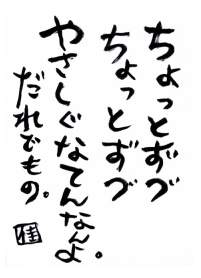 ちょっとずづ
ちょっとずづ
やさしぐなてんなんよ。
だれでもの。
佳